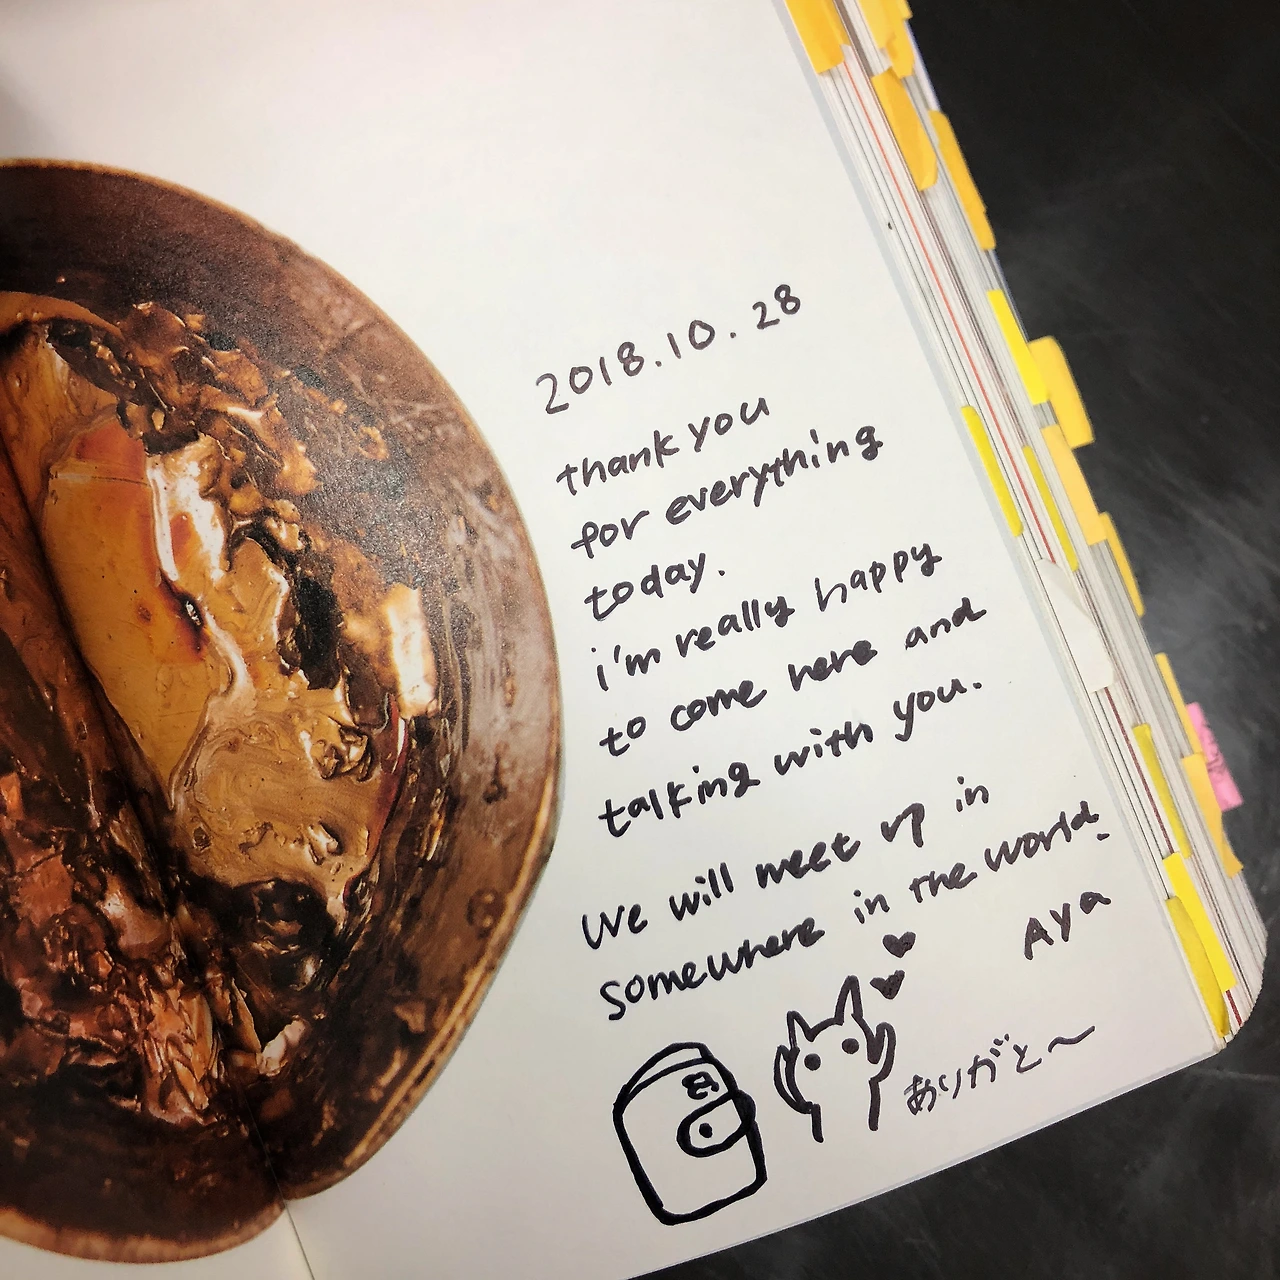 2018.10.28
thank you
for everything
today.
i'm really happy
to come here and
talking with you.
We will meet up in
somewhere in the world.
Aya
ありがと〜